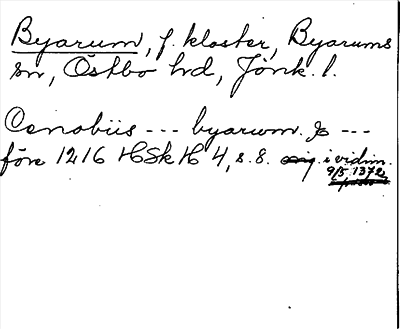 Byarum, f. kloster, Byarums
sn, Östbo hd, Jönk. l.
Cenobiis --- byarum. ---
före 1216 HSkH 4, s. 8. i vidim.
9/5 1372